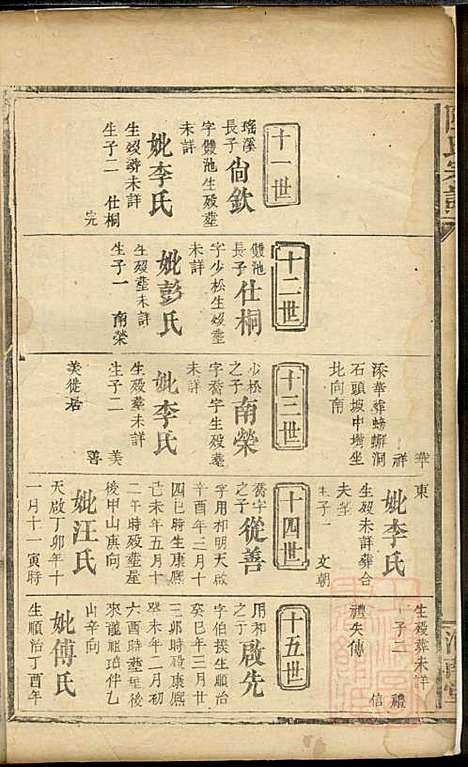 十一世
瑤溪長子
尙欽
字雙池生歿塟
未詳
妣李氏
生歿塟未詳
生子二 仕桐
完
十二世
雙池長子
仕桐
字少松生歿塟
未詳
妣彭氏
生歿塟未詳
生子一 南榮
石頭坡中壠坐
北向南
十三世
少松之子
南榮
字喬宇生歿塟
未詳
妣李氏
生歿塟未詳
生子二 美
善
美徙居
東
華
祥
妣李氏
生歿未詳葬合
夫
生子一 文朝
十四世
喬宇之子
從善
字用和明天啟
辛酉年三月十
四巳時生康熙
己未年五月十
二午時歿塟屋
後甲山庚向
妣汪氏
天啟丁卯年十
一月十一寅時
生歿塟未詳
子二 禮
信
禮失傳
十五世
用和之子
啟先
字伯揆生順治
癸巳年三月廿
三卯時歿康熙
癸未年二月初
六酉時塟楼年
來龍祖瑃伴乙
山辛向
妣傅氏
生順治丁酉年